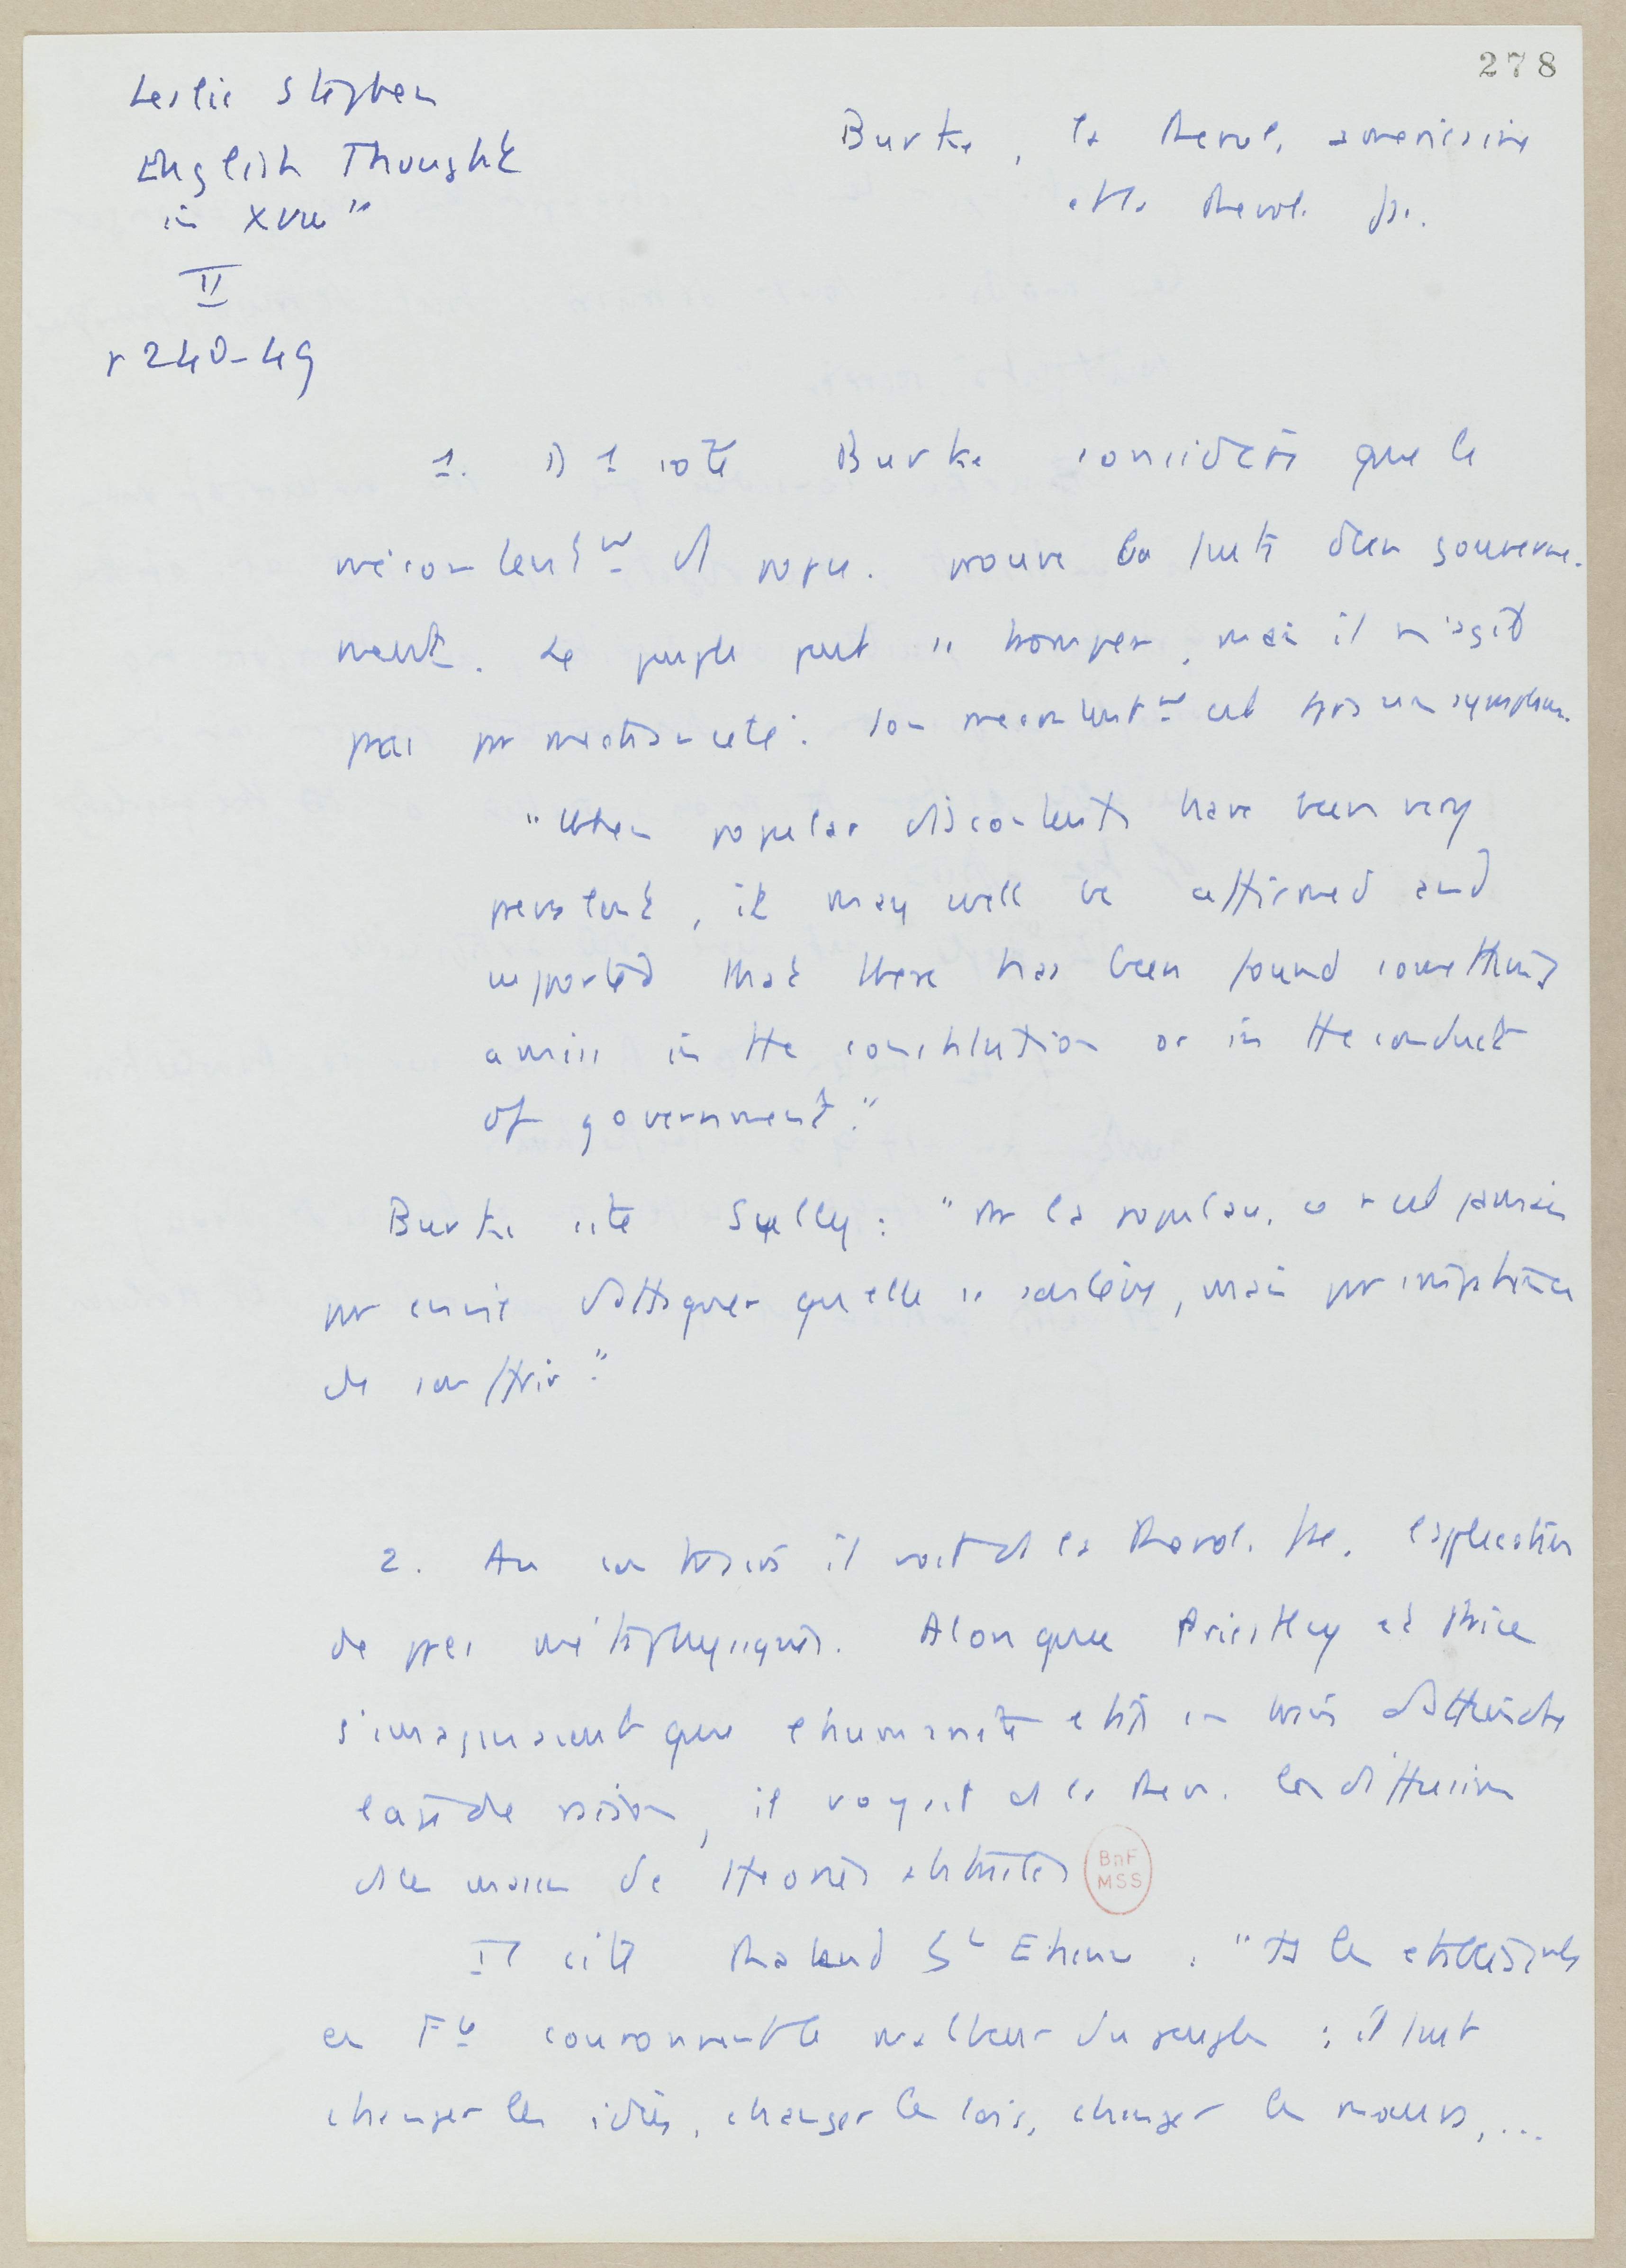 278
Leslie Stephen
English Thought
in XVIII"
II
p 240-49
Burke, la Revol. americaine
et la Revol. fse.
1. D 1 coté Burke considère que le
mécontentmt d popu. prouve la faute d'un gouverne-
ment. Le peuple peut se tromper, mais il n'agit
pas pr mechanceté : son mecontentmt est tjrs un symptome.
"When popular discontents have been very
prevalent, it may well be affirmed and
supported that there has been found something
amiss in the constitution or in the conduct
of government."
Burke cite Sully : "Pr la populace, ce n'est jamais
pr envie d'attaquer qu'elle se soulève, mais pr impatience
de souffrir."
2. Au contraire il voit ds la Revol. fse. l'application
de ppes métaphysiques. Alors que Priestley et Price
s'imaginaient que l'humanité était en train d'atteindre
l'age de raison, il voyait ds la Rev. la diffusion
ds la masse de theories abstraites
BnF
MSS
Il cite Rabaud St Etienne : "Ts les etablissmts
en Fce couronnent le malheur du peuple : il faut
changer les idées, changer les lois, changer les moeurs, ...